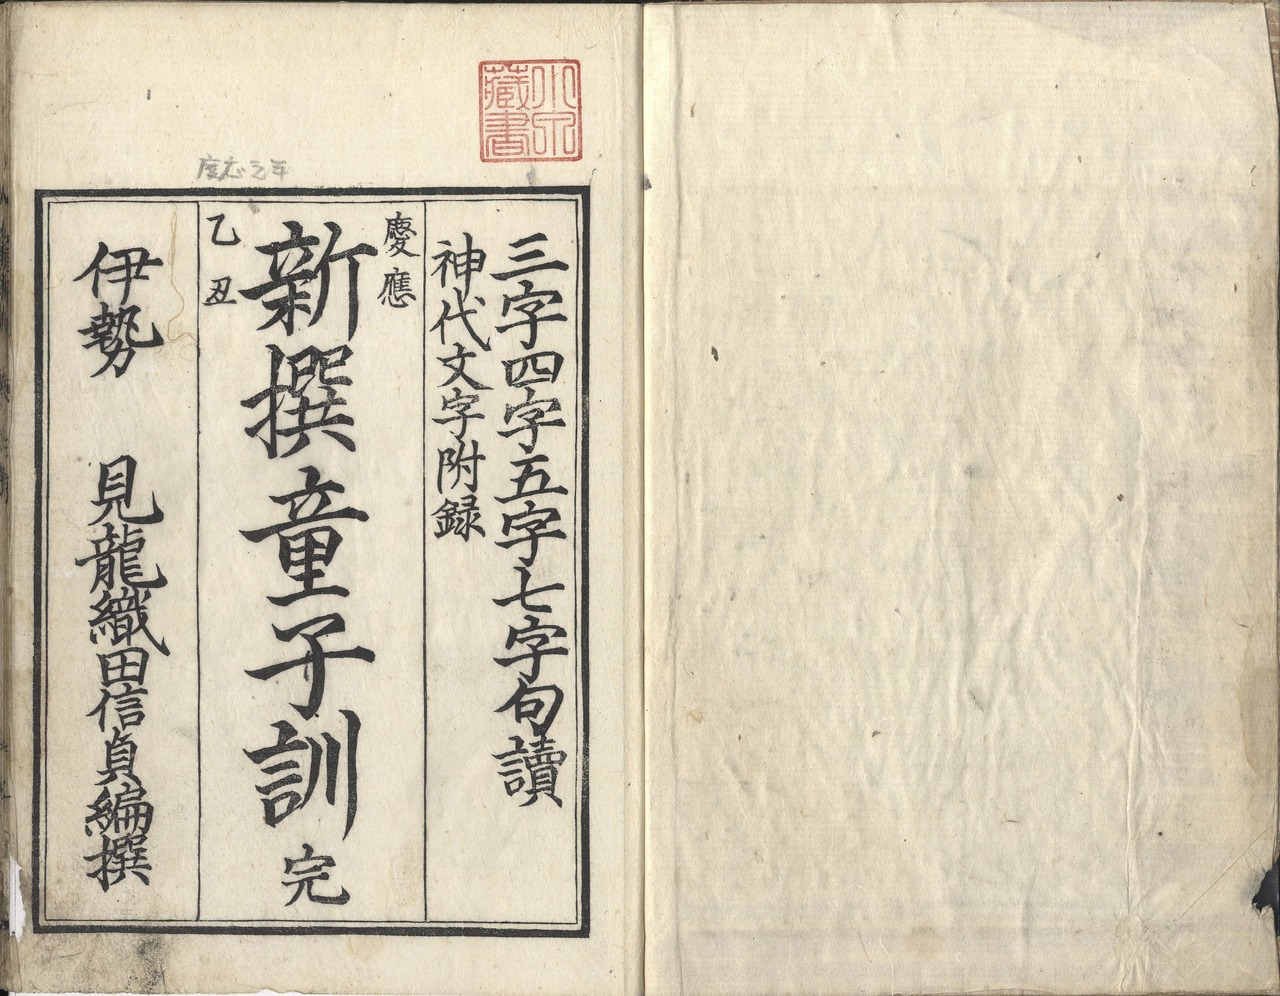 小泉藏書
慶応元年
三字四字五字七字句讀
神代文字附録
慶應
乙丑
新撰童子訓 完
伊勢 見龍織田信貞編撰